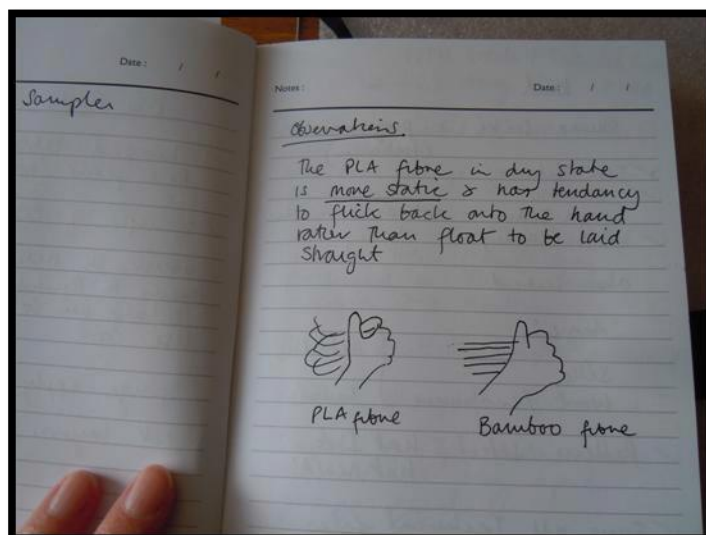 Date : / /
Samples
Notes : Date : / /
Observations
The PLA fibre in dry state
is more static & has tendancy
to flick back onto the hand
rather than float to be laid
straight
PLA fibre
Bamboo fibre